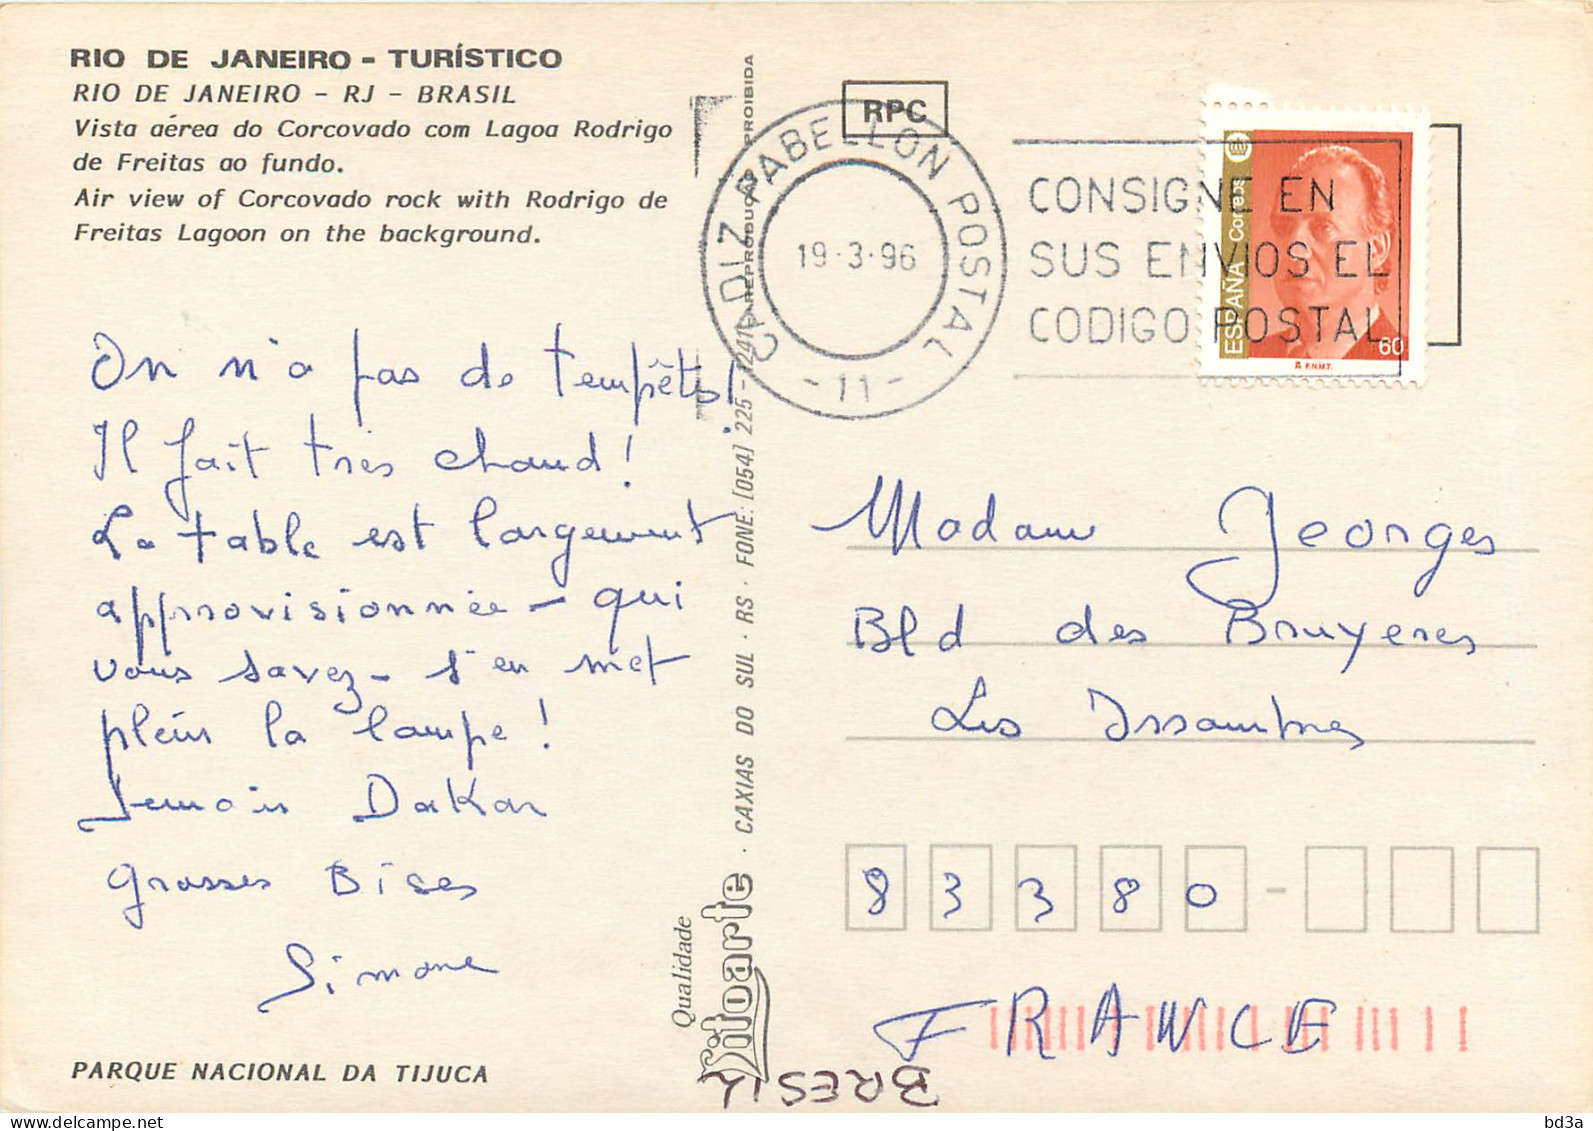 RIO DE JANEIRO - TURÍSTICO
RIO DE JANEIRO - RJ - BRASIL
Vista aérea do Corcovado com Lagoa Rodrigo
de Freitas ao fundo.
Air view of Corcovado rock with Rodrigo de
Freitas Lagoon on the background.
On n'a pas de tempêtes!
Il fait très chaud!
La table est largement
approvisionnée - qui
vous savez - s'en met
plein la lampe!
Demain Dakar
Grosses Bises
Simone
PARQUE NACIONAL DA TIJUCA
Qualidade
Litoarte · CAXIAS DO SUL · RS · FONE: [054] 225-1241 REPRODUÇÃO PROIBIDA
RPC
CADIZ PABELLON POSTAL
19·3·96
-11-
CONSIGNE EN
SUS ENVIOS EL
CODIGO POSTAL
ESPAÑA Correos
60
F.N.M.T.
Madame Georges
Bld des Bruyeres
Les Issambres
83380-
FRANCE
BRESIL
bd3a